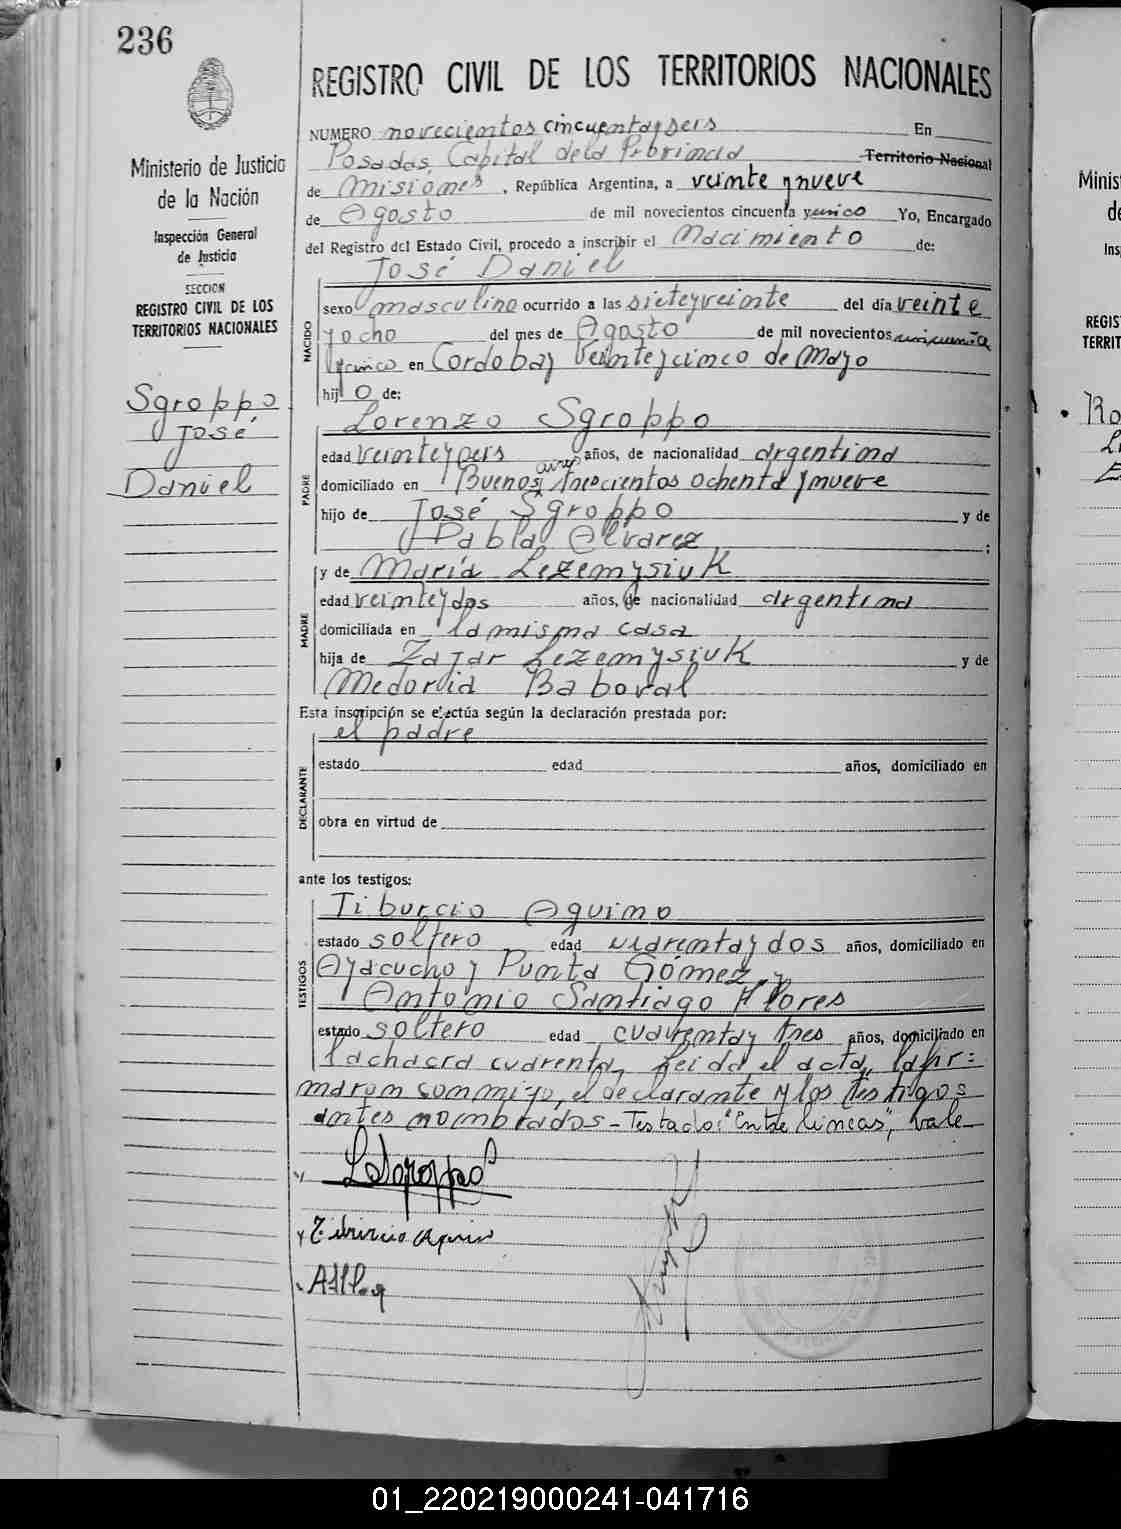 236
Ministerio de Justicia
de la Nación
Inspección General
de Justicia
SECCION
REGISTRO CIVIL DE LOS
TERRITORIOS NACIONALES
Sgroppo
José
Daniel
REGISTRO CIVIL DE LOS TERRITORIOS NACIONALES
NUMERO novecientos cincuenta y seis En
Posadas, Capital de la Provincia Territorio Nacional
de Misiones, República Argentina, a veinte y nueve
de Agosto de mil novecientos cincuenta y cinco Yo, Encargado
del Registro del Estado Civil, procedo a inscribir el Nacimiento de:
José Daniel
NACIDO
sexo masculino ocurrido a las siete y veinte del día veinte
y ocho del mes de Agosto de mil novecientos cincuenta
y cinco en Cordoba y Veinte y cinco de Mayo
hijo de:
Lorenzo Sgroppo
PADRE
edad veinte y seis años, de nacionalidad argentina
domiciliado en Buenos aires trescientos ochenta y nueve
hijo de José Sgroppo y de
Pabla Alvarez ;
y de María Lezemysiuk
MADRE
edad veinte y dos años, de nacionalidad argentina
domiciliada en la misma casa
hija de Zajar Lezemysiuk y de
Medorvia Baboval
Esta inscripción se efectúa según la declaración prestada por:
el padre
DECLARANTE
estado edad años, domiciliado en
obra en virtud de
ante los testigos:
Tiburcio Aquino
TESTIGOS
estado soltero edad cuarenta y dos años, domiciliado en
Ayacucho y Punta Gómez, y
Antonio Santiago Flores
estado soltero edad cuarenta y tres años, domiciliado en
la chacra cuarenta, Leida el acta, la fir=
maron conmigo, el declarante y los testigos
antes nombrados - Testado: "Entre lineas", vale
L Sgroppo
Tiburcio Aquino
Minis
de
Ins
REGIS
TERRIT
Ro
01_220219000241-041716